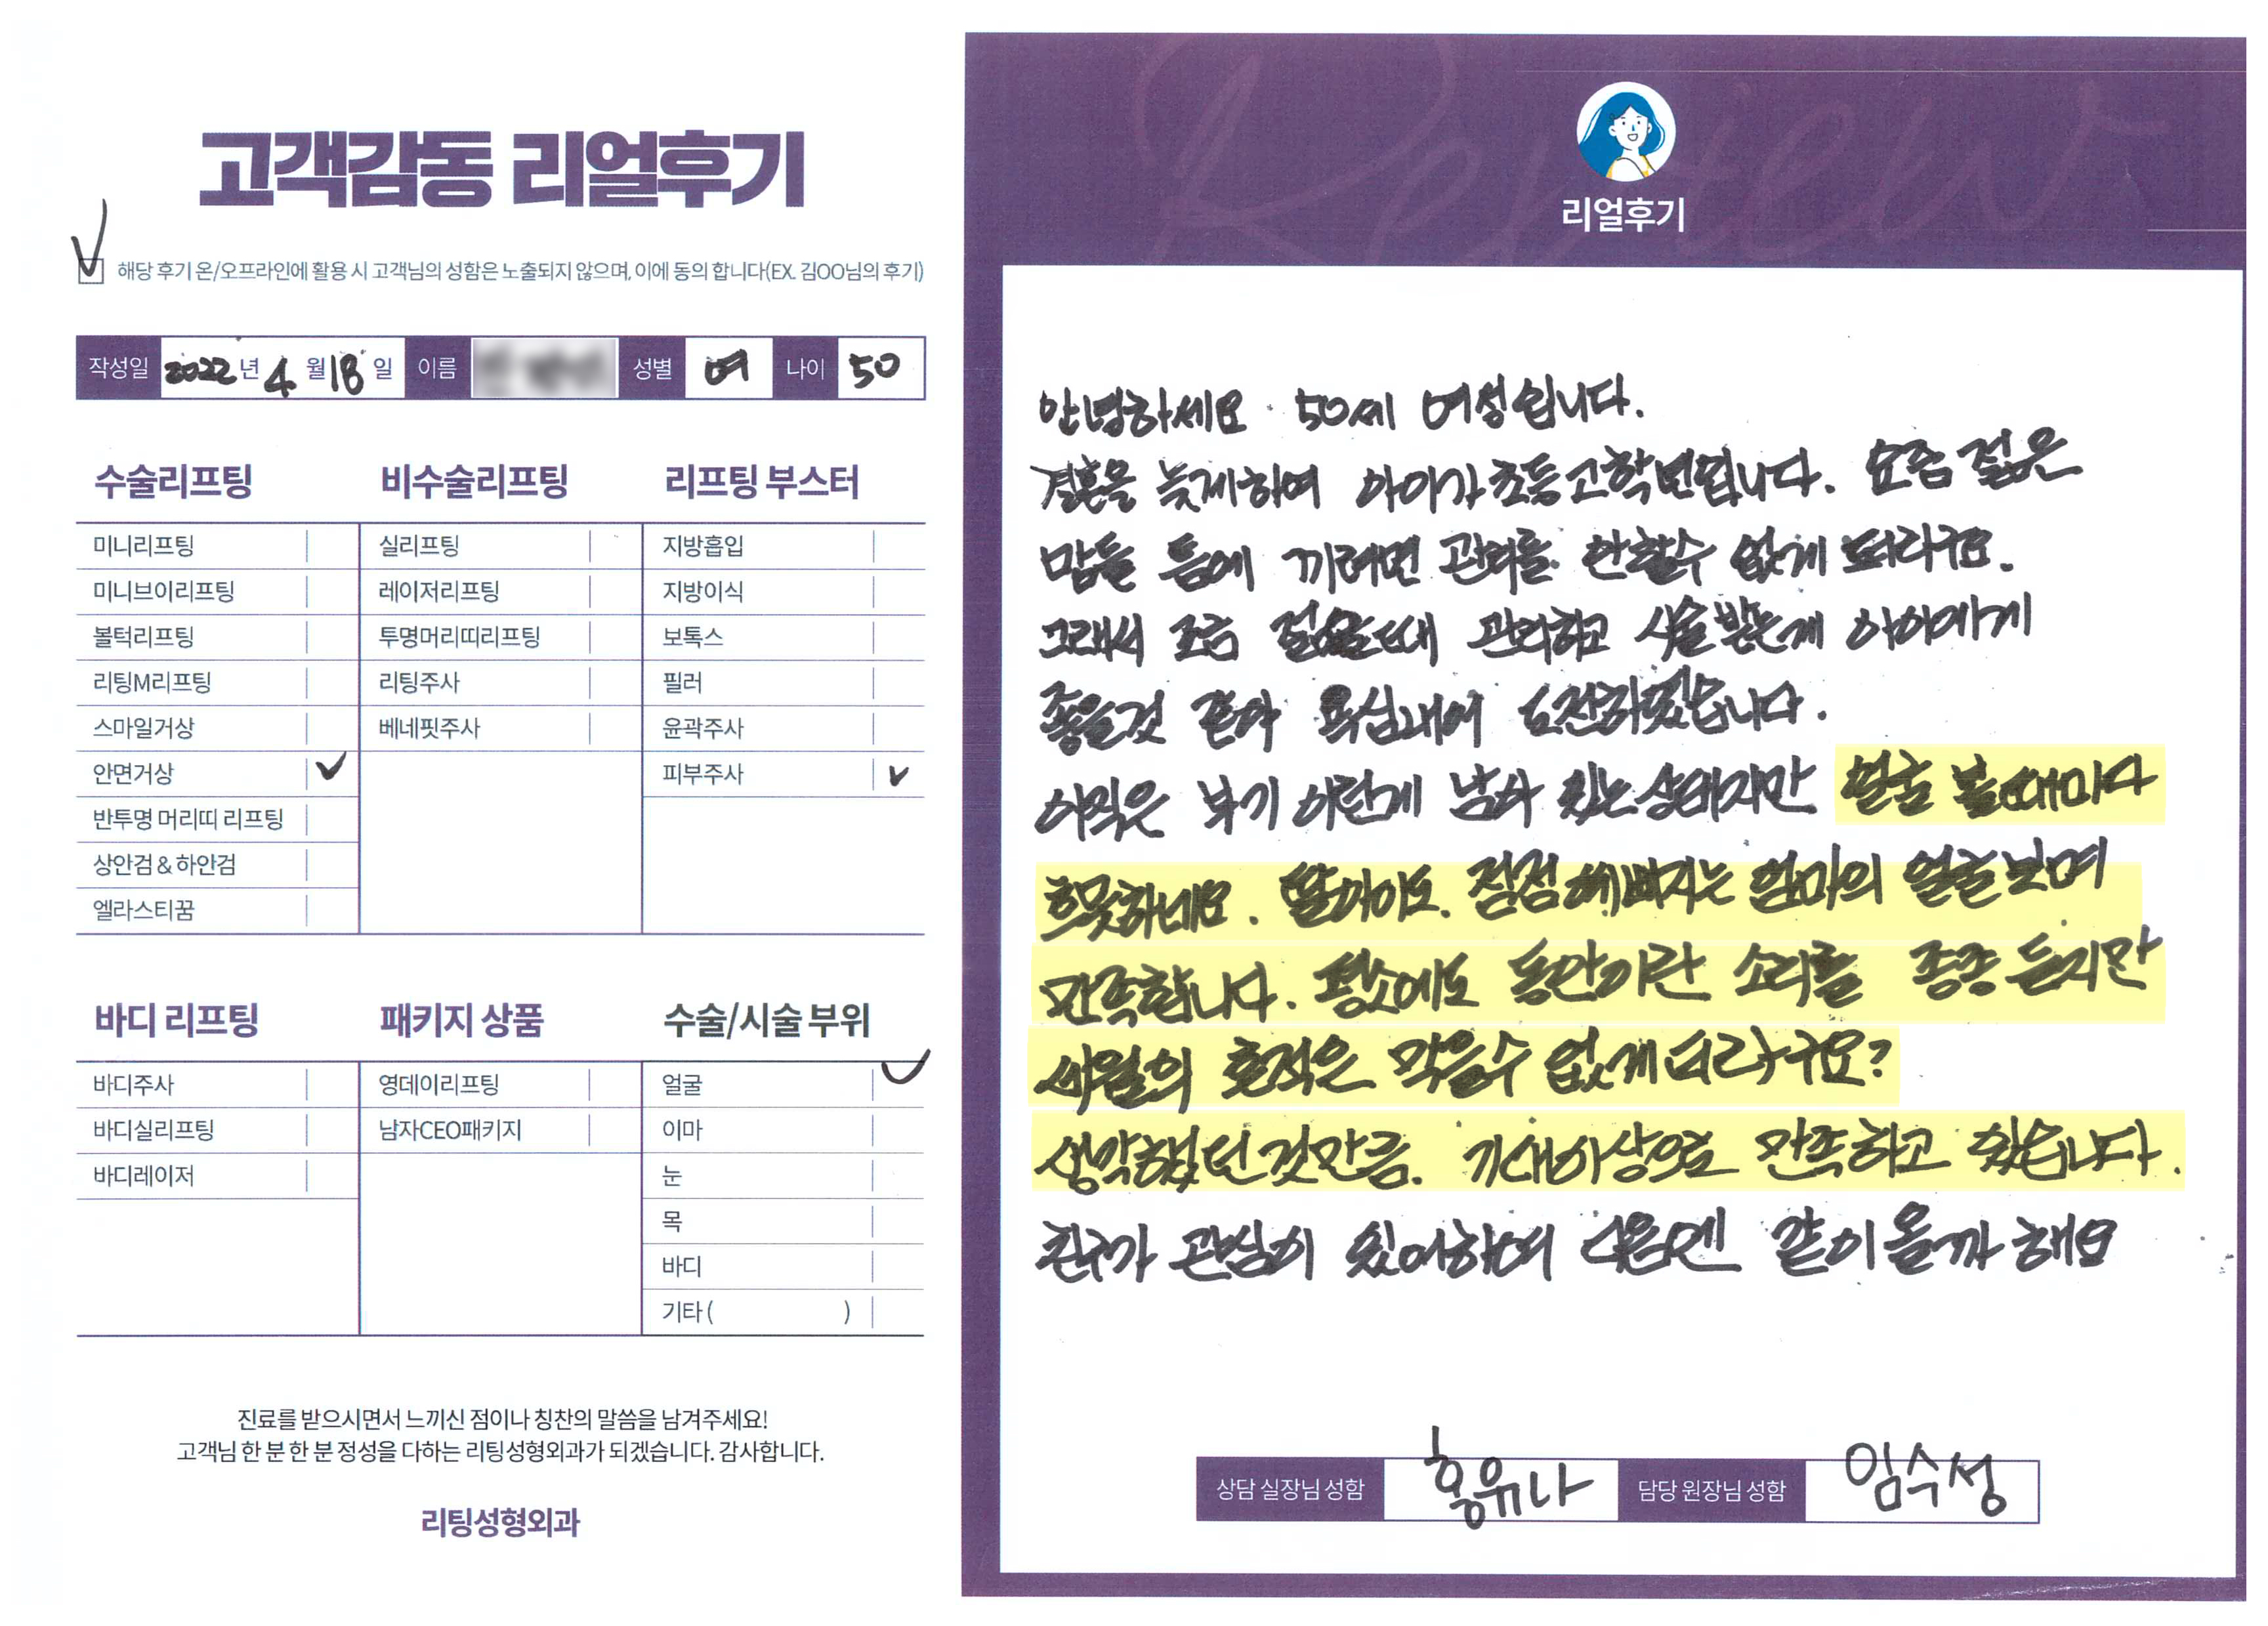 고객감동 리얼후기
해당 후기 온/오프라인에 활용 시 고객님의 성함은 노출되지 않으며, 이에 동의 합니다(EX. 김OO님의 후기)
작성일 2022년 4월 18일 이름 성별 여 나이 50
수술리프팅
미니리프팅
미니브이리프팅
볼턱리프팅
리팅M리프팅
스마일거상
안면거상 ✓
반투명 머리띠 리프팅
상안검 & 하안검
엘라스티꿈
비수술리프팅
실리프팅
레이저리프팅
투명머리띠리프팅
리팅주사
베네핏주사
리프팅 부스터
지방흡입
지방이식
보톡스
필러
윤곽주사
피부주사 ✓
바디 리프팅
바디주사
바디실리프팅
바디레이저
패키지 상품
영데이리프팅
남자CEO패키지
수술/시술 부위
얼굴 ✓
이마
눈
목
바디
기타 ( )
진료를 받으시면서 느끼신 점이나 칭찬의 말씀을 남겨주세요!
고객님 한 분 한 분 정성을 다하는 리팅성형외과가 되겠습니다. 감사합니다.
리팅성형외과
Review
리얼후기
안녕하세요. 50세 여성입니다.
결혼을 늦게하여 아이가 초등고학년입니다. 요즘 젊은
맘들 틈에 끼려면 관리를 안할수 없게 되더라구요.
그래서 조금 젊을때 관리하고 시술받는게 아이에게
좋을것 같아 욕심내어 도전하였습니다.
아직은 부기 이란게 남아 있는상태지만 얼굴 볼때마다
흐뭇하네요. 딸아이도. 점점예뻐지는 엄마의 얼굴보며
만족합니다. 평소에도 동안이란 소리를 종종 듣지만
세월의 흔적은 막을수 없게되더라구요?
생각했던것만큼. 기대이상으로 만족하고 있습니다.
친구가 관심이 있어하여 다음엔 같이올까 해요
상담 실장님 성함 홍유나 담당 원장님 성함 임수성